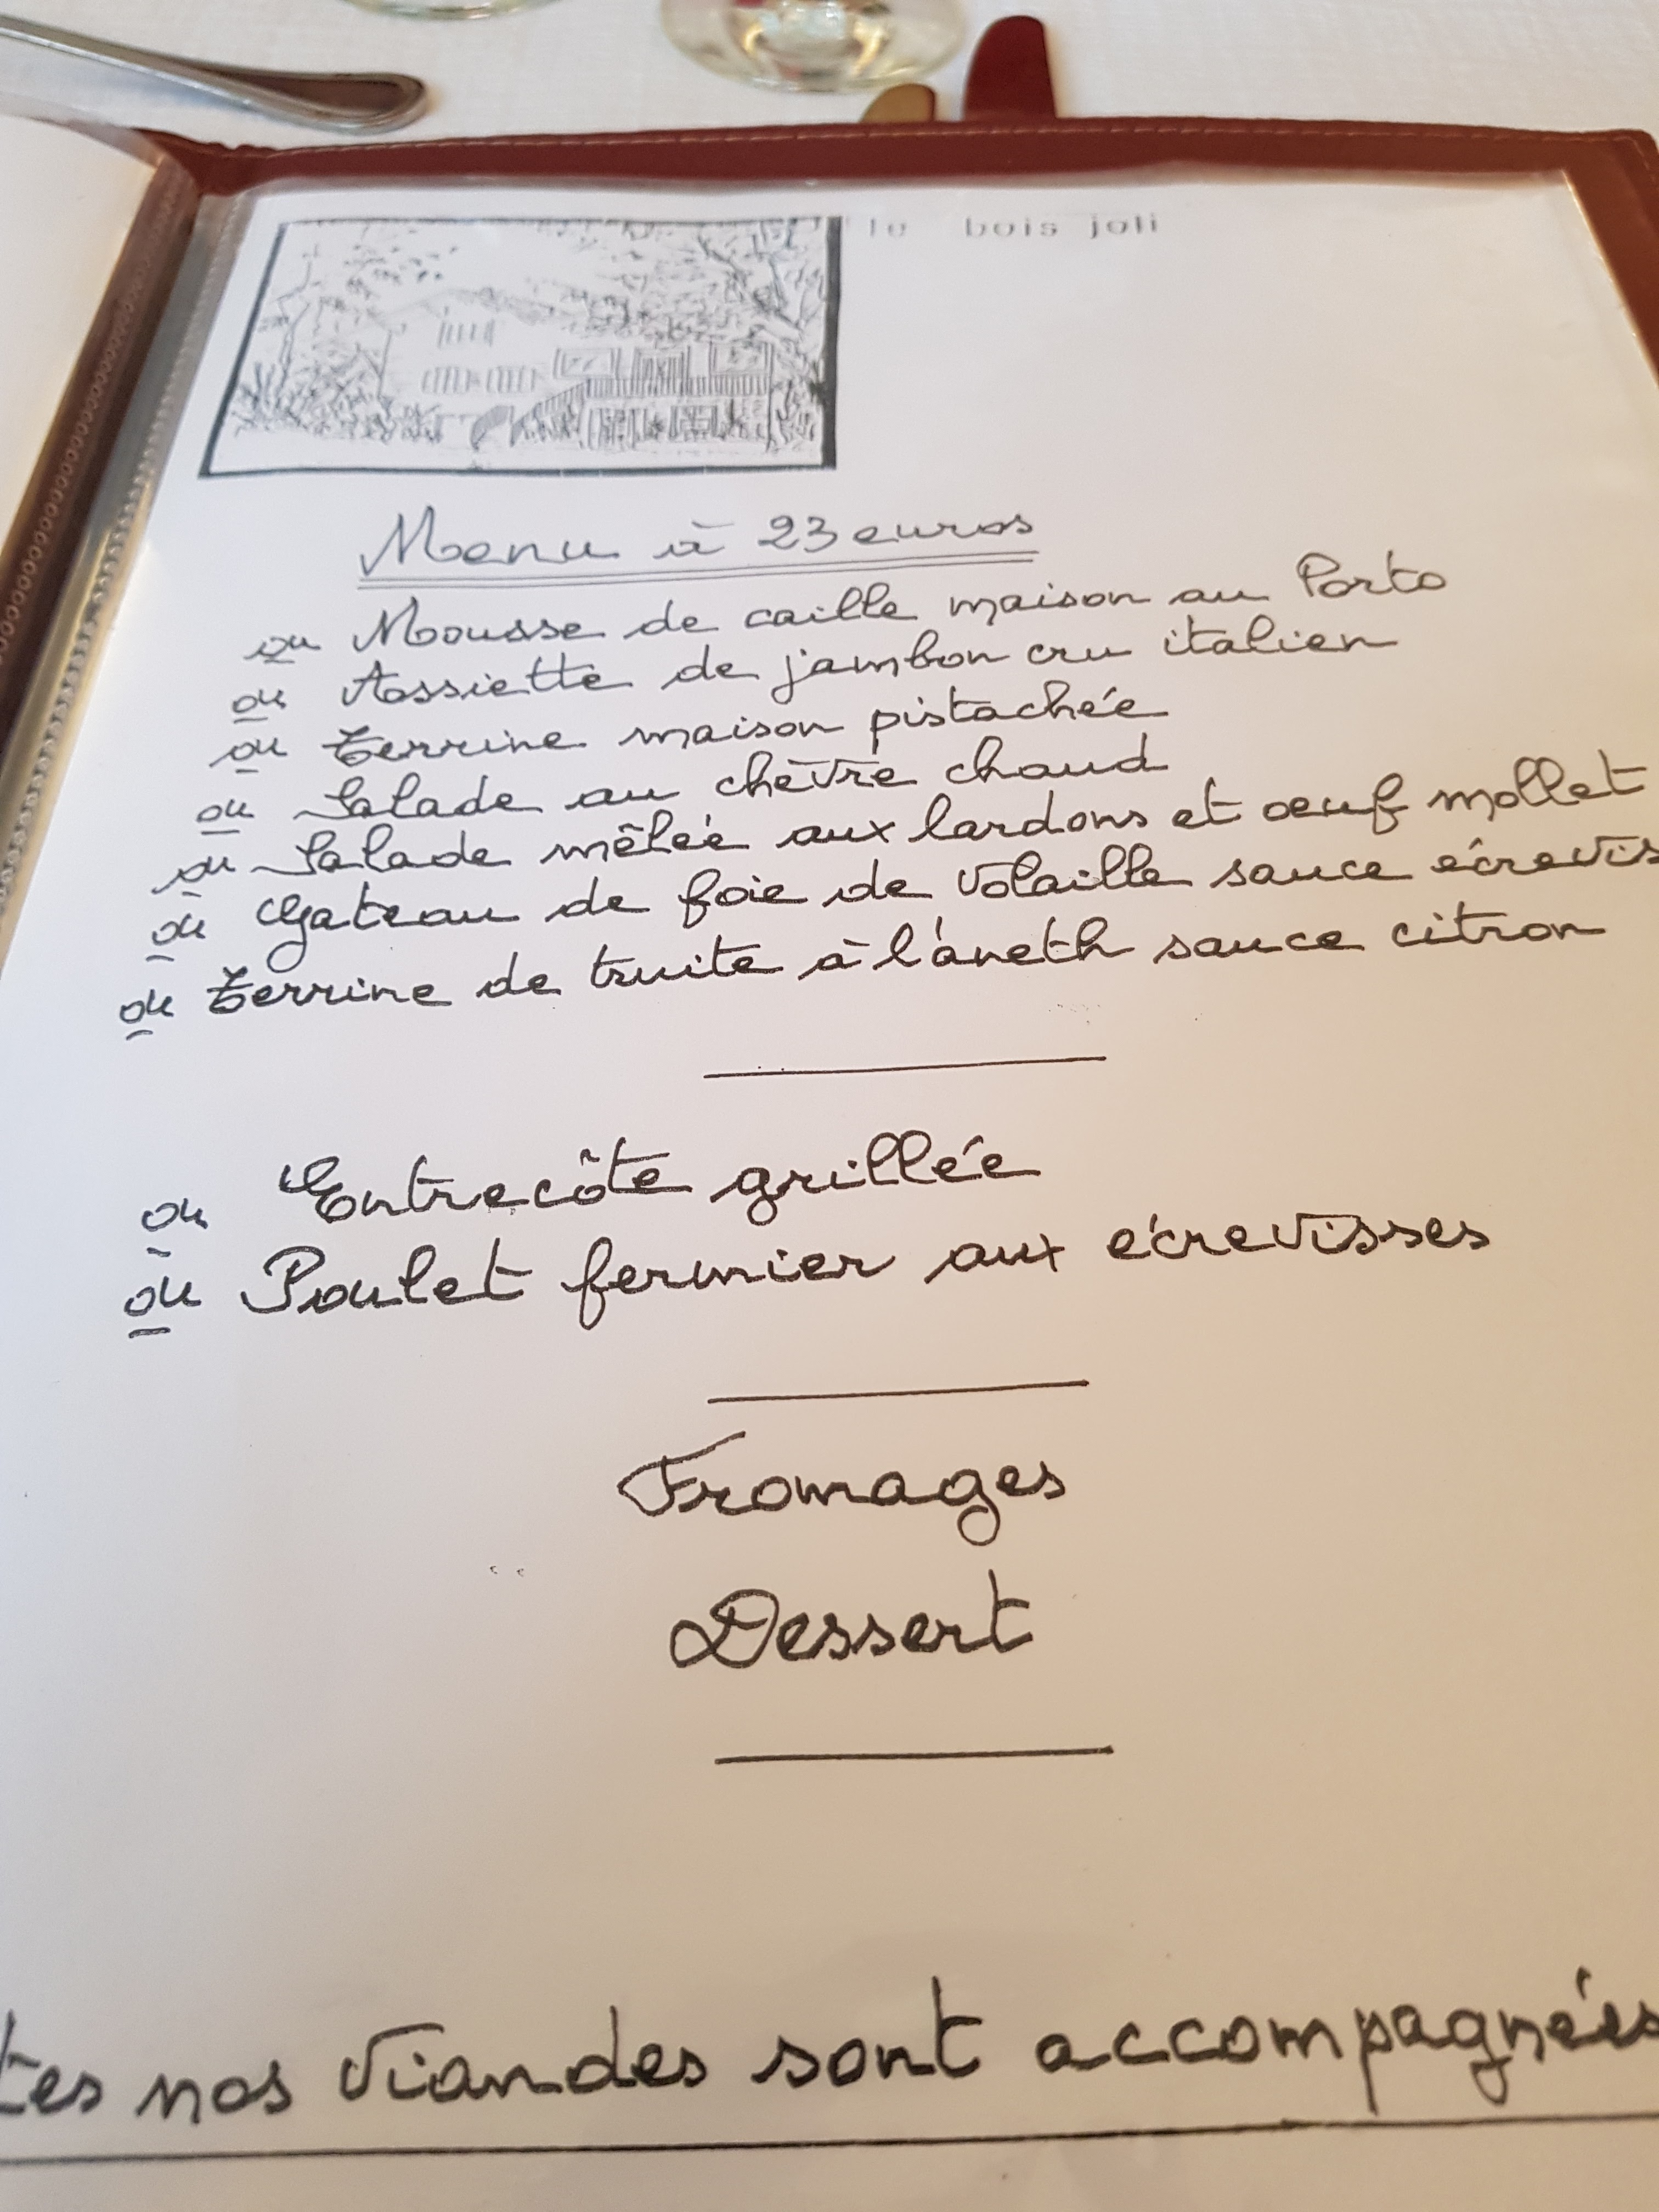 le bois joli
Menu à 23 euros
ou Mousse de caille maison au Porto
ou Assiette de jambon cru italien
ou Terrine maison pistachée
ou Salade au chèvre chaud
ou Salade mêlée aux lardons et oeuf mollet
ou Gateau de foie de volaille sauce écrevis
ou Terrine de truite à l'aneth sauce citron
ou Entrecôte grillée
ou Poulet fermier aux écrevisses
Fromages
Dessert
tes nos viandes sont accompagnées